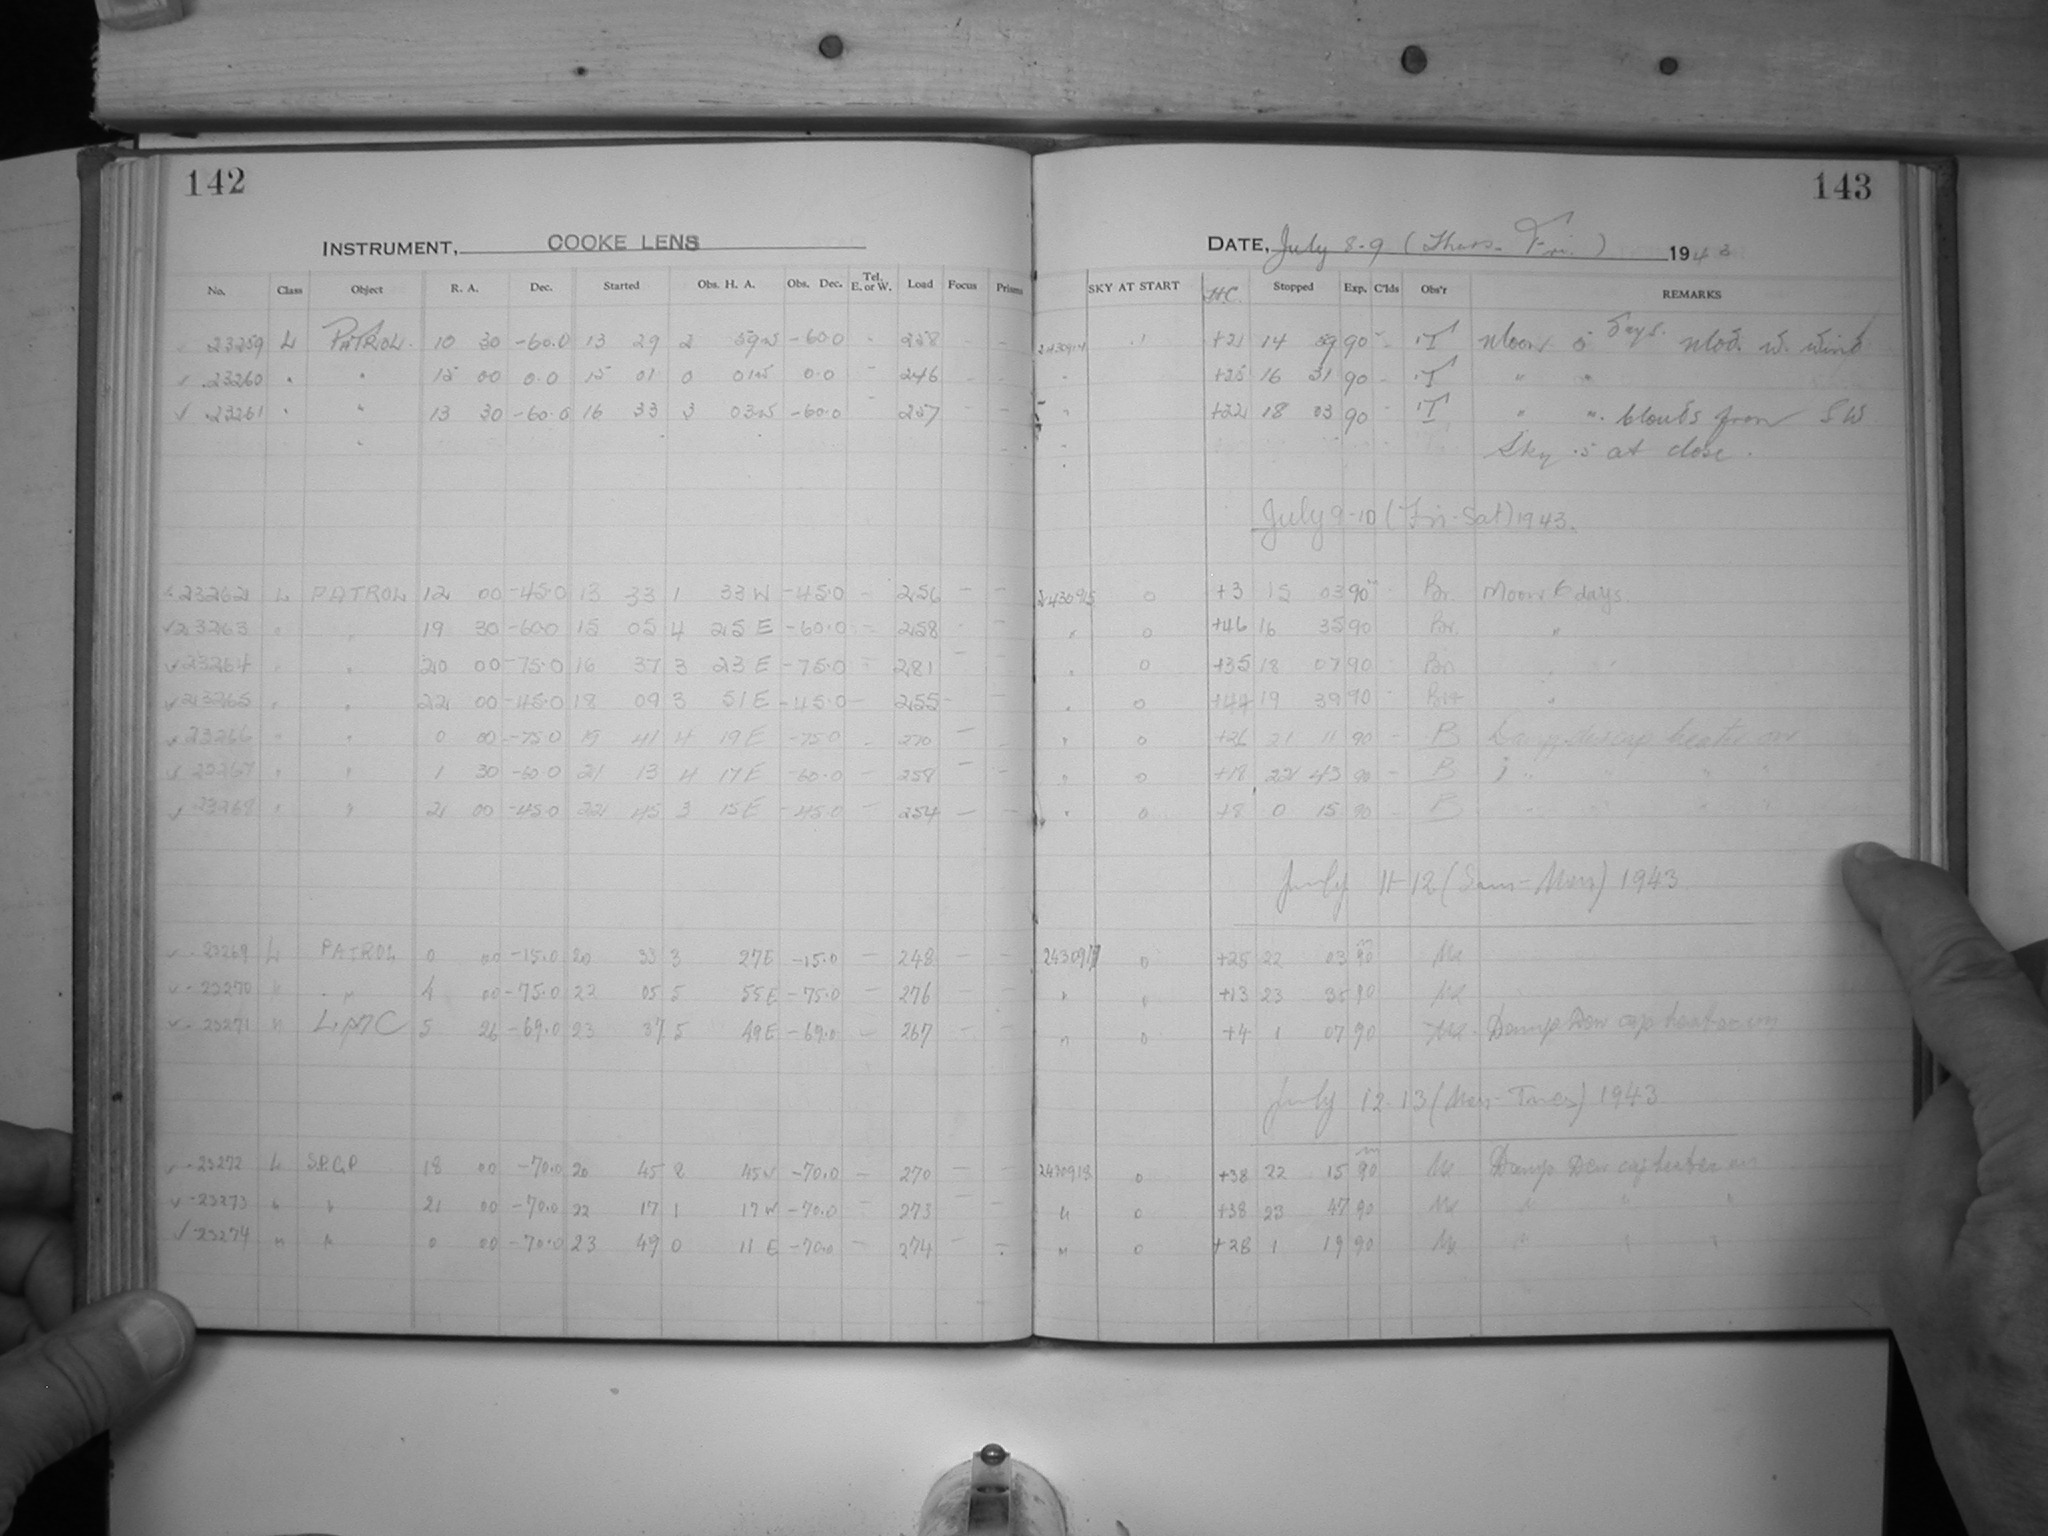 142
143
INSTRUMENT, COOKE LENS
DATE, July 8-9 (Thurs. Fri.) 1943
No. Class Object R. A. Dec. Started Obs. H. A. Obs. Dec. Tel. E. or W. Load Focus Prisms SKY AT START H.C. Stopped Exp. C'lds Obs'r REMARKS
23259 L PATROL 10 30 -60.0 13 29 2 59W -60.0 - 258 - - 2430914 1 +21 14 59 90 - T Moon 5 days. Mod. W. wind
23260 " " 15 00 0.0 15 01 0 01W 0.0 - 246 - - " +25 16 31 90 - T " "
23261 " " 13 30 -60.0 16 33 3 03W -60.0 257 " +22 18 03 90 - T " ". Clouds from SW
Sky 5 at close.
July 9-10 (Fri-Sat) 1943.
23262 L PATROL 12 00 -45.0 13 33 1 33W -45.0 - 256 - - 2430915 0 +3 15 03 90 - Br. Moon 6 days.
23263 " " 19 30 -60.0 15 05 4 25E -60.0 - 258 - - " 0 +46 16 35 90 Br. "
23264 " " 20 00 -75.0 16 37 3 23E -75.0 - 281 - - " 0 +35 18 07 90 Br. "
23265 " " 22 00 -45.0 18 09 3 51E -45.0 - 255 - - " 0 +44 19 39 90 - "
23266 " " 0 00 -75.0 19 41 4 19E -75.0 - 270 - - " 0 +26 21 11 90 - B Damp dewcap heater on
23267 " " 1 30 -60.0 21 13 4 17E -60.0 - 258 - - " 0 +18 22 43 90 - B " " "
23268 " " 2 00 -45.0 22 45 3 15E -45.0 - 254 - - " 0 +8 0 15 90 - B " " "
July 11-12 (Sun-Mon) 1943
23269 L PATROL 0 00 -15.0 20 33 3 27E -15.0 - 248 - - 2430917 0 +25 22 03 90
23270 " " 4 00 -75.0 22 05 5 55E -75.0 - 276 - - " " +13 23 35 90
23271 " LMC 5 26 -69.0 23 37 5 49E -69.0 - 267 - - " 0 +4 1 07 90 Damp Dew cap heater on
July 12-13 (Mon-Tues) 1943
23272 L S.P.G.P 18 00 -70.0 20 45 2 45W -70.0 - 270 - - 2430918 0 +38 22 15 90 Damp Dew cap heater on
23273 " " 21 00 -70.0 22 17 1 17W -70.0 - 273 - - " 0 +38 23 47 90 " " "
23274 " " 0 00 -70.0 23 49 0 11E -70.0 - 274 - - " 0 +28 1 19 90 " " "